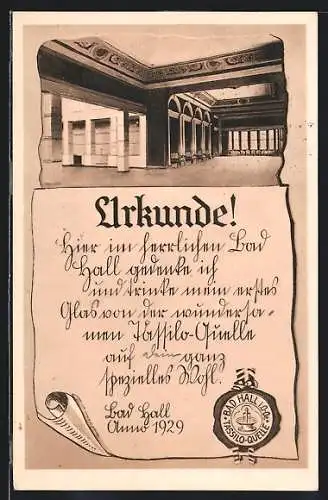 Urkunde!
Hier im herrlichen Bad
Hall gedenke ich
und trinke mein erstes
Glas von der wundersa-
men Tassilo-Quelle
auf dein ganz
spezielles Wohl.
Bad Hall
Anno 1929
BAD HALL O.Ö.
TASSILO-QUELLE